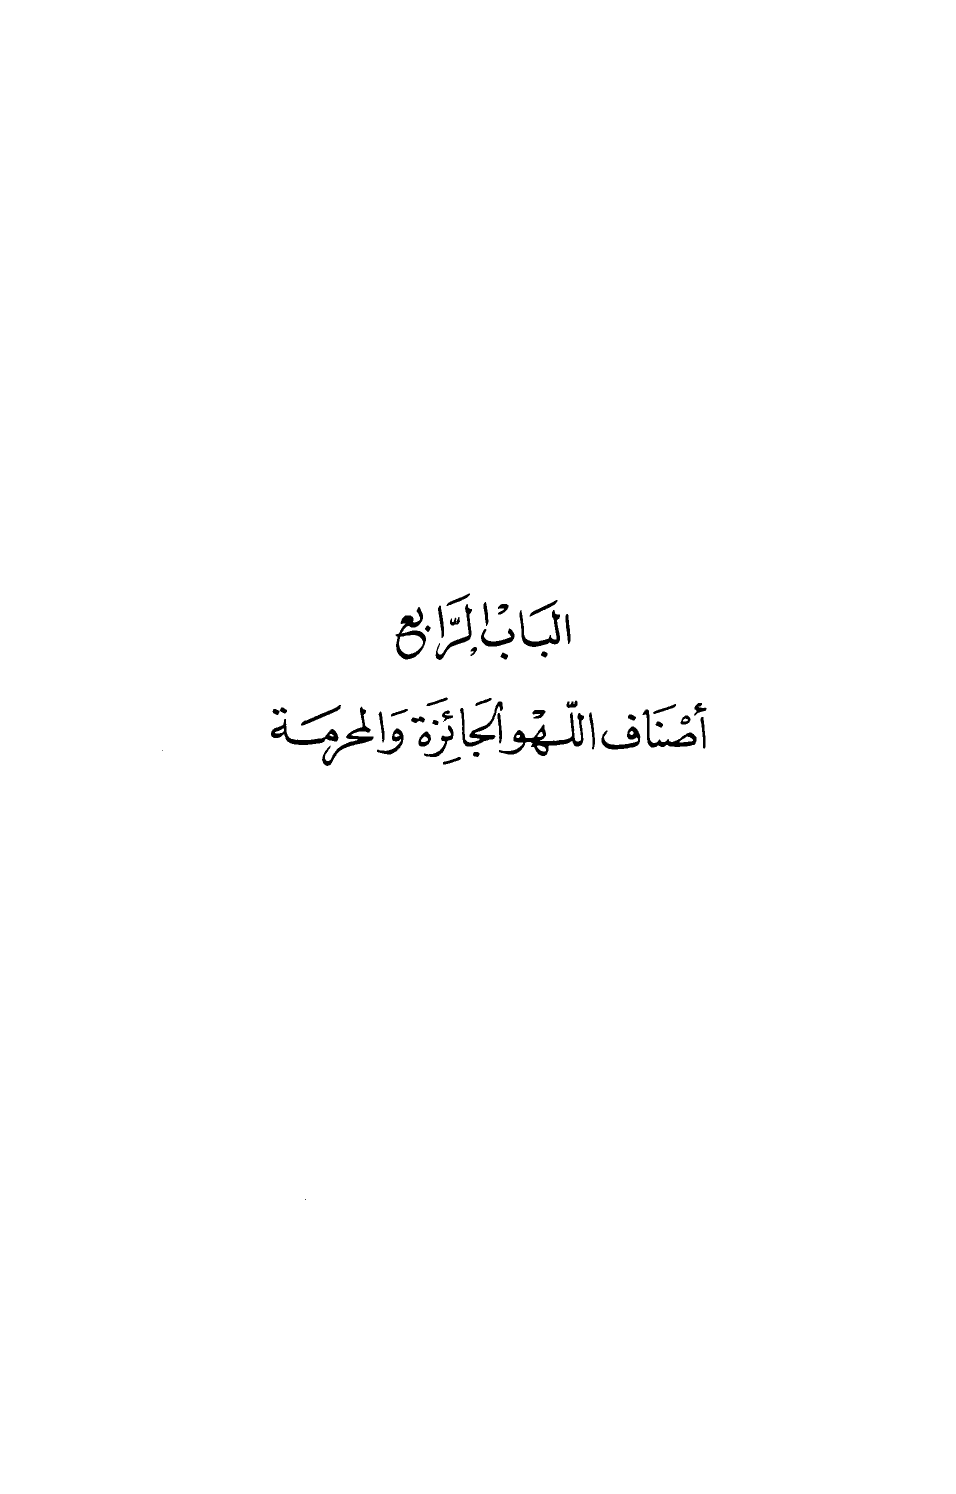 البَابُ الرَّابع
أصْنَاف اللّهْو الجَائِزَة وَالمحرمَة